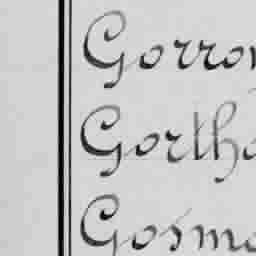 Gorron
Gortho
Gosmo